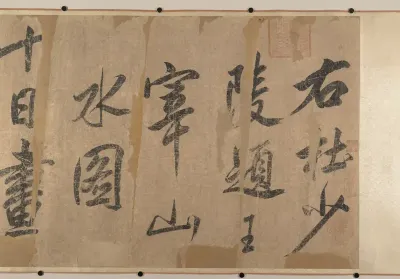 右杜少
陵題王
宰山
水圖
十日畫